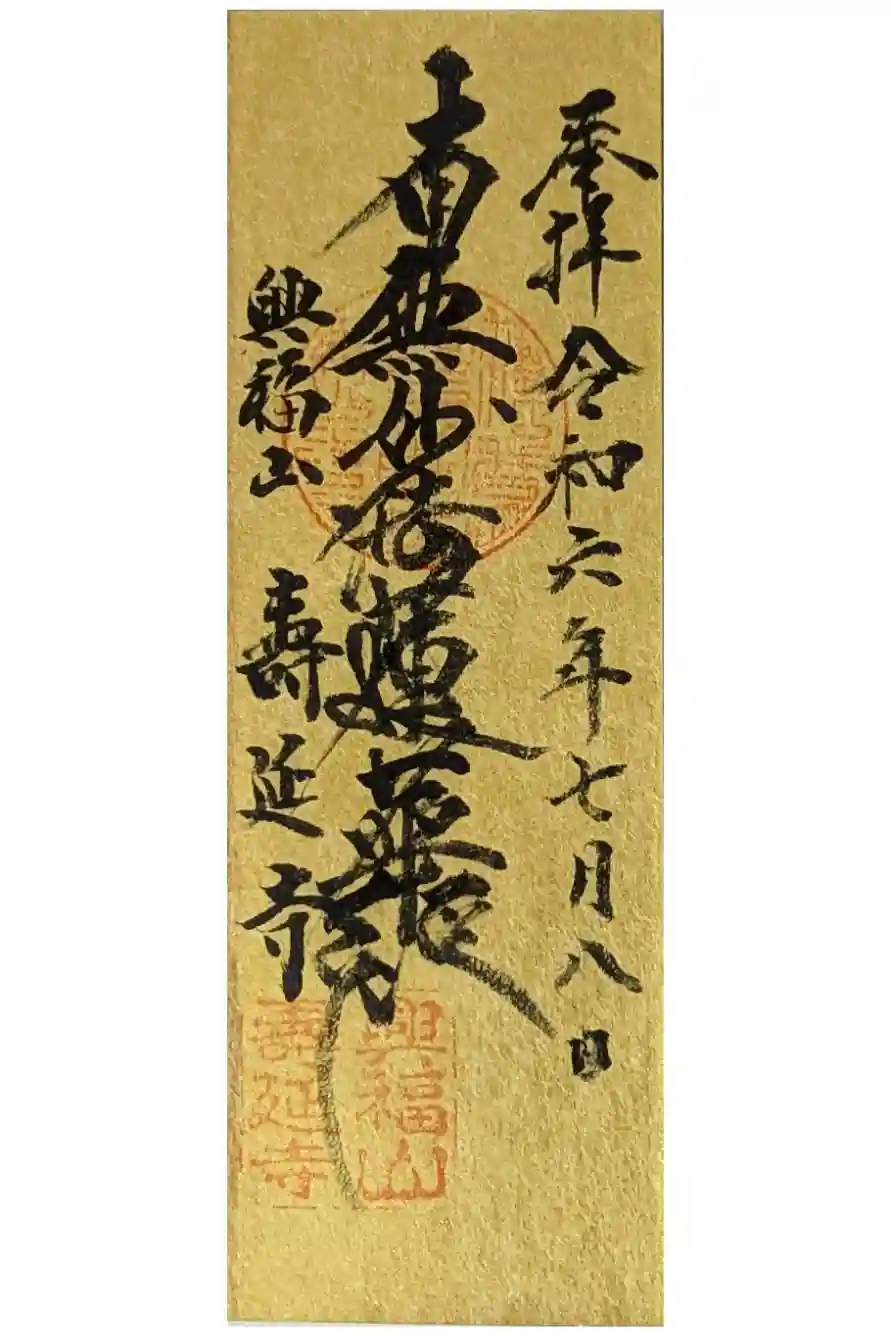 奉拝 令和六年七月八日
南無妙法蓮華経
興福山 壽延寺
興福山
壽延寺